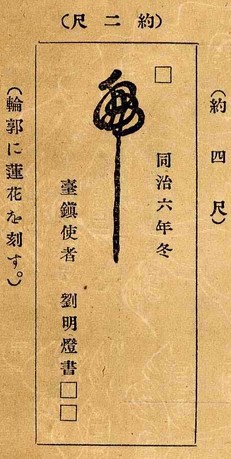 （約二尺）
（約四尺）
□
同治六年冬
虎
臺鎭使者　劉明燈書□□
（輪郭に蓮花を刻す。）